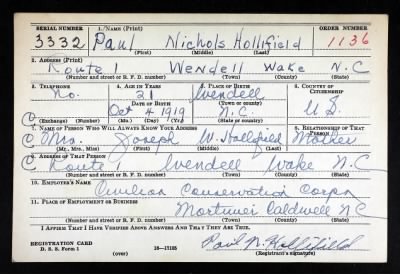 SERIAL NUMBER 1. NAME (Print) ORDER NUMBER
3332 Paul Nichols Hollifield 1136
(First) (Middle) (Last)
2. ADDRESS (Print)
Route 1 Wendell Wake N.C
(Number and street or R. F. D. number) (Town) (County) (State)
3. TELEPHONE 4. AGE IN YEARS 5. PLACE OF BIRTH 6. COUNTRY OF CITIZENSHIP
No. 21 Wendell
DATE OF BIRTH (Town or county)
Oct 4 1919 N.C U.S.
(Exchange) (Number) (Mo.) (Day) (Yr.) (State or country)
7. NAME OF PERSON WHO WILL ALWAYS KNOW YOUR ADDRESS 8. RELATIONSHIP OF THAT PERSON
C Mrs. Joseph W. Hollifield Mother
(Mr., Mrs., Miss) (First) (Middle) (Last)
9. ADDRESS OF THAT PERSON
C Route 1 Wendell Wake N.C
(Number and street or R. F. D. number) (Town) (County) (State)
10. EMPLOYER'S NAME
Civilian Conservation Corps
11. PLACE OF EMPLOYMENT OR BUSINESS
Mortimer Caldwell N C
(Number and street or R. F. D. number) (Town) (County) (State)
I AFFIRM THAT I HAVE VERIFIED ABOVE ANSWERS AND THAT THEY ARE TRUE.
REGISTRATION CARD
D. S. S. Form 1 (over) 16—17105 Paul N. Hollifield
(Registrant's signature)